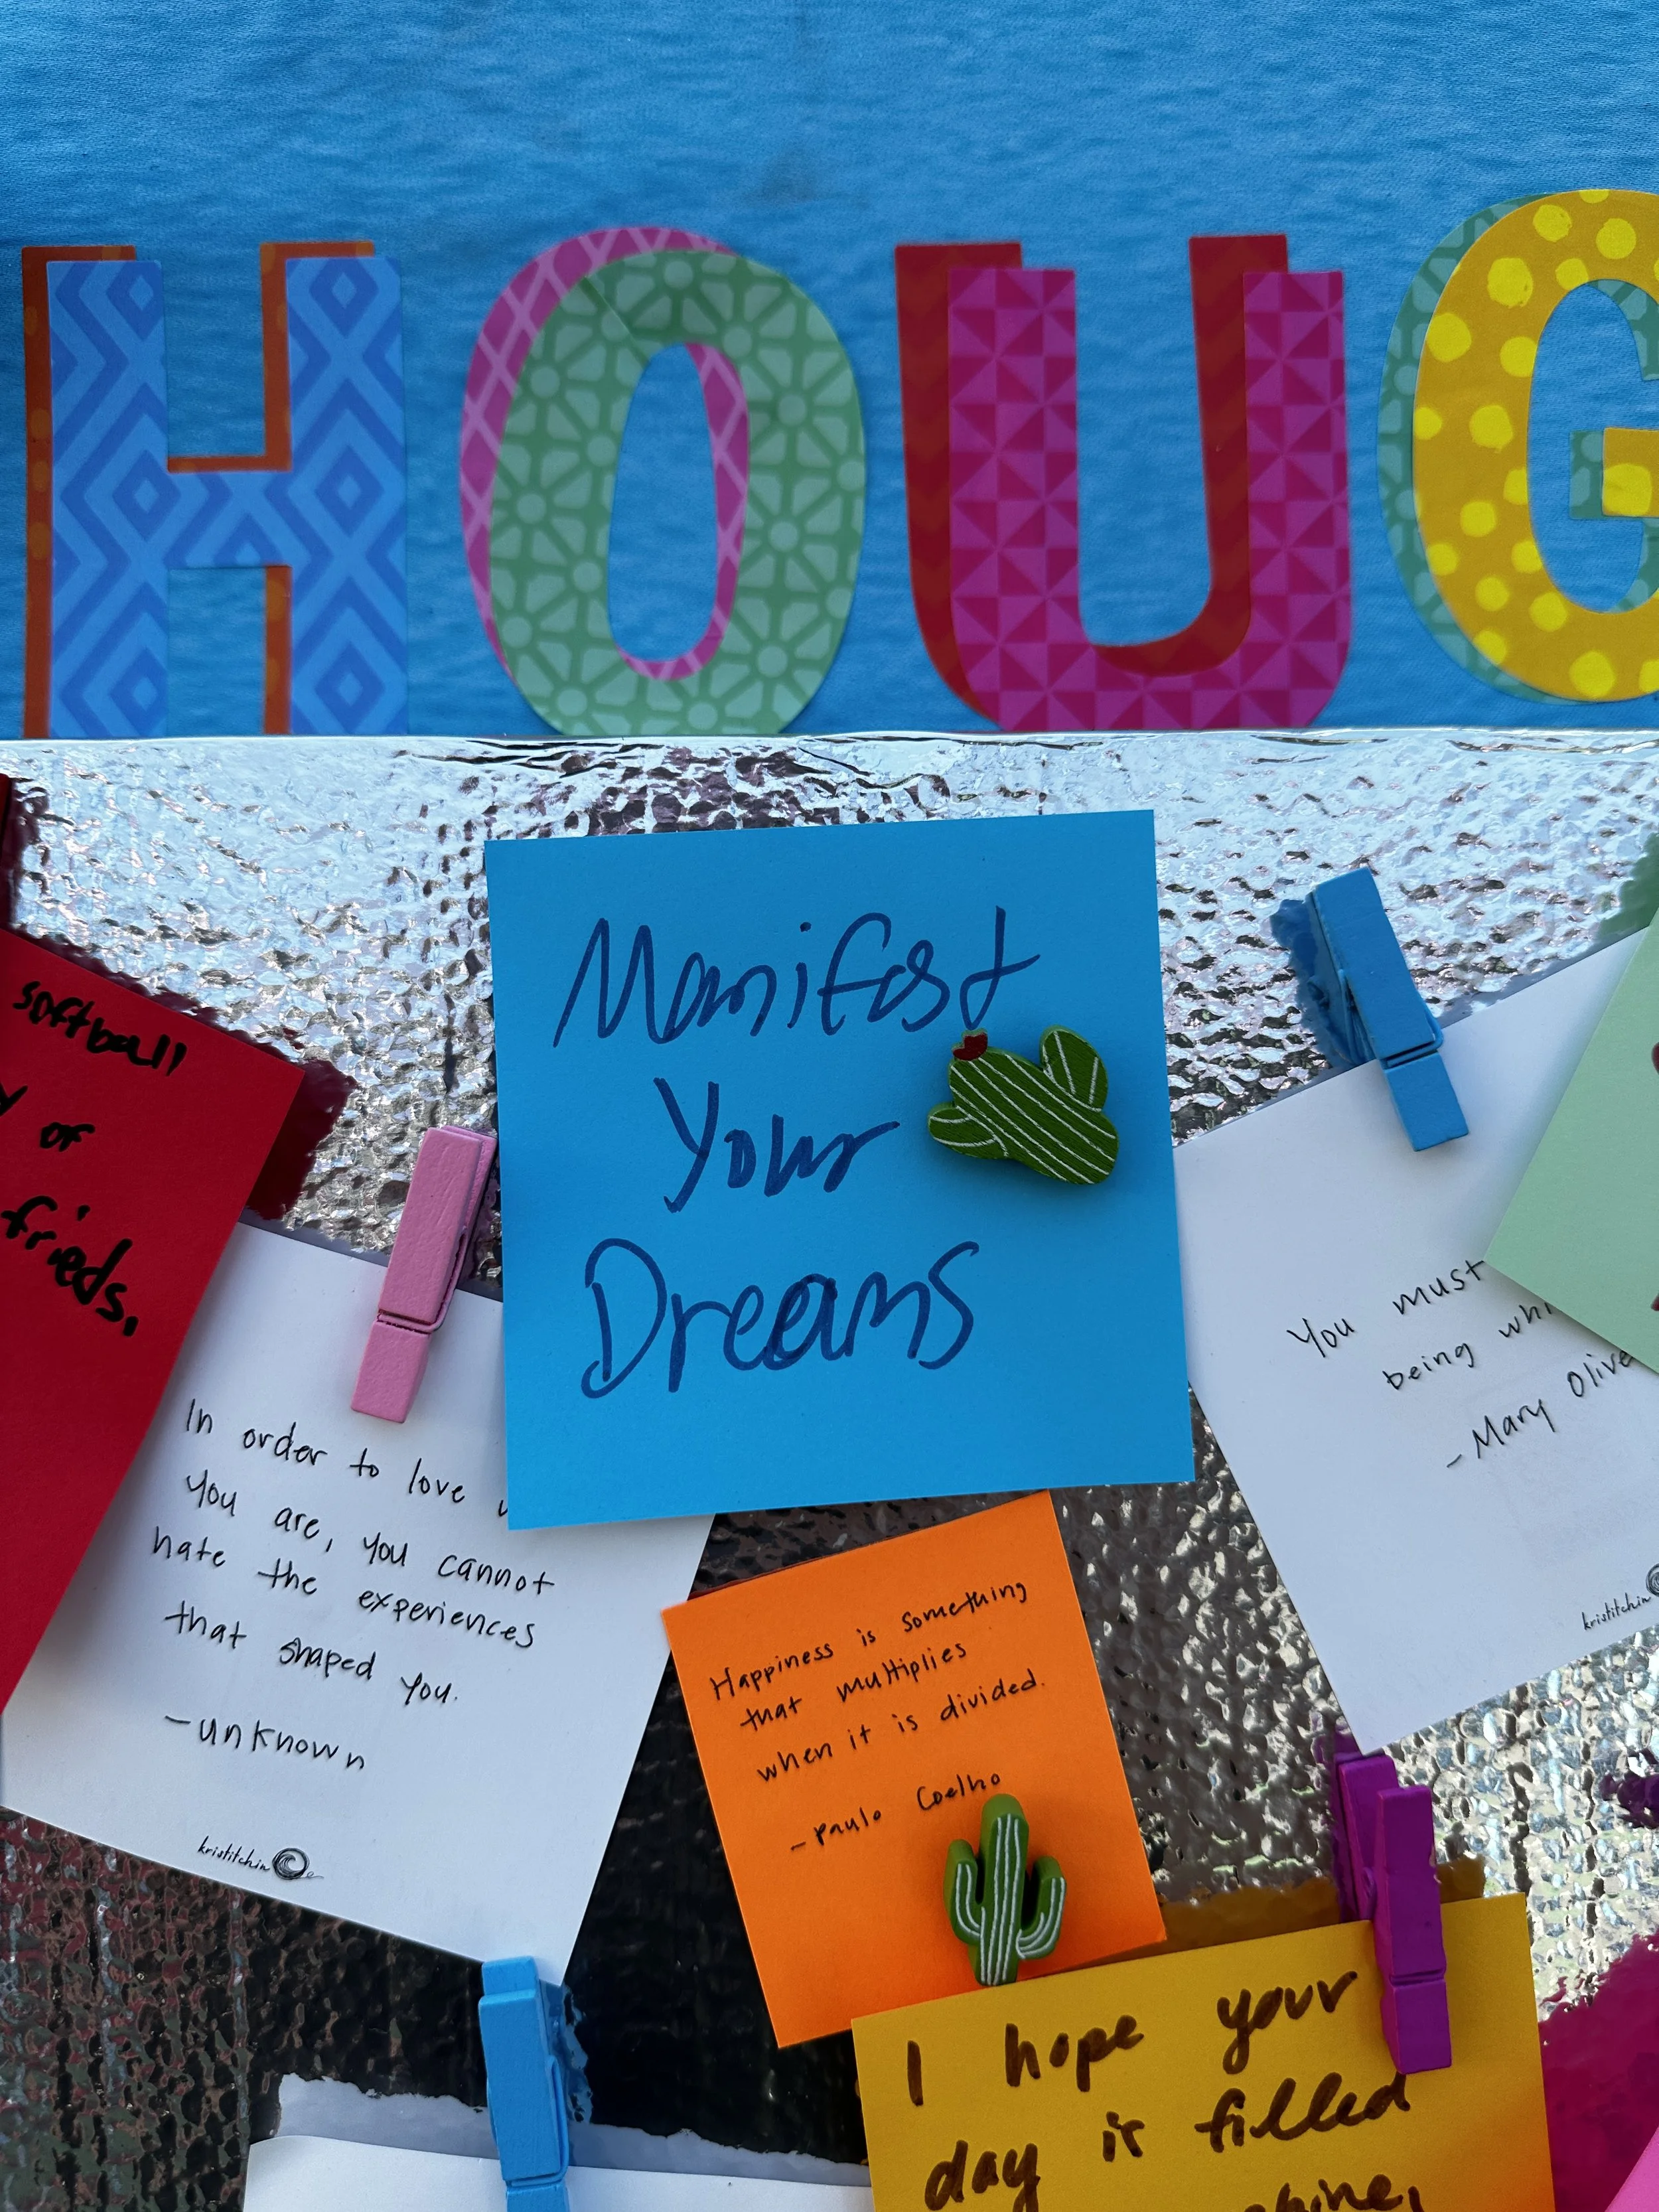 HOUG
Manifest
Your
Dreams
softball
or
frieds.
In order to love
you are, you cannot
hate the experiences
that shaped you.
-unknown
kristitchin
You must
being
-Mary Olive
kristitchin
Happiness is something
that multiplies
when it is divided.
-Paulo Coelho
I hope your
day is filled